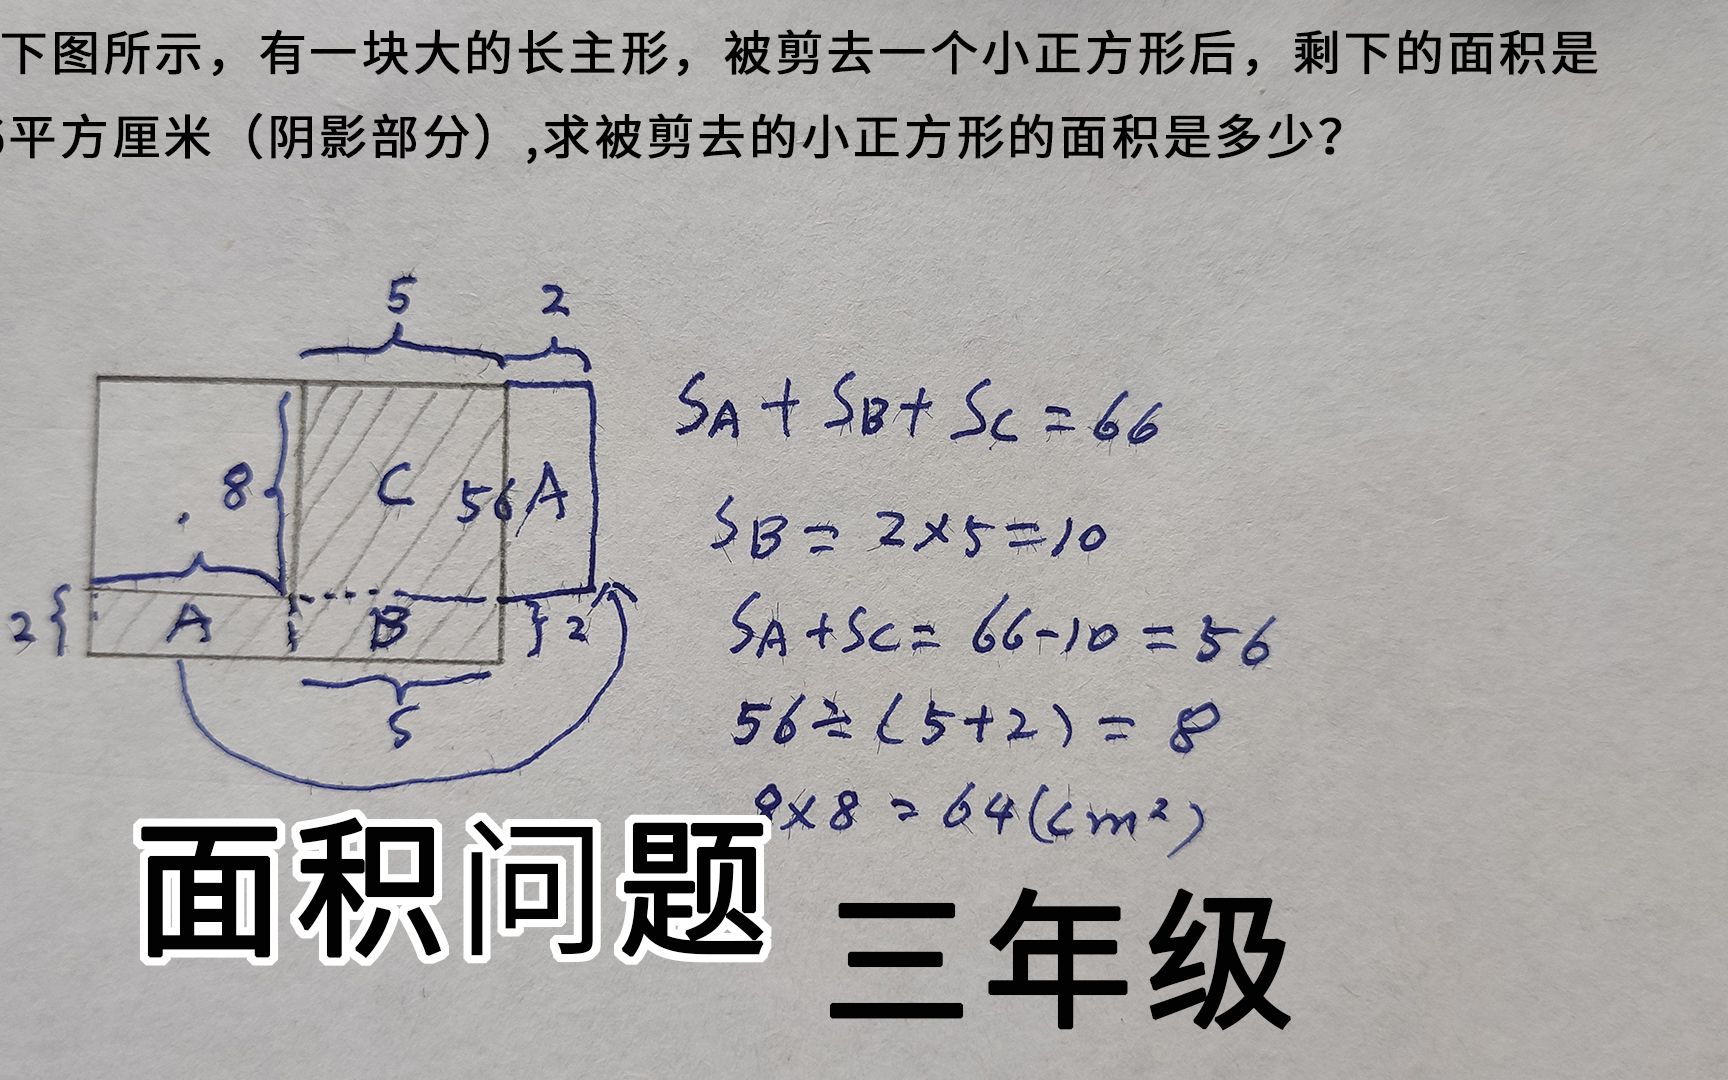 下图所示，有一块大的长主形，被剪去一个小正方形后，剩下的面积是
6平方厘米（阴影部分）,求被剪去的小正方形的面积是多少？
5 2
8 C 56 A
2 A B 2
5
SA + SB + SC = 66
SB = 2×5=10
SA+SC = 66-10 = 56
56÷(5+2) = 8
8×8 = 64(cm²)
面积问题
三年级